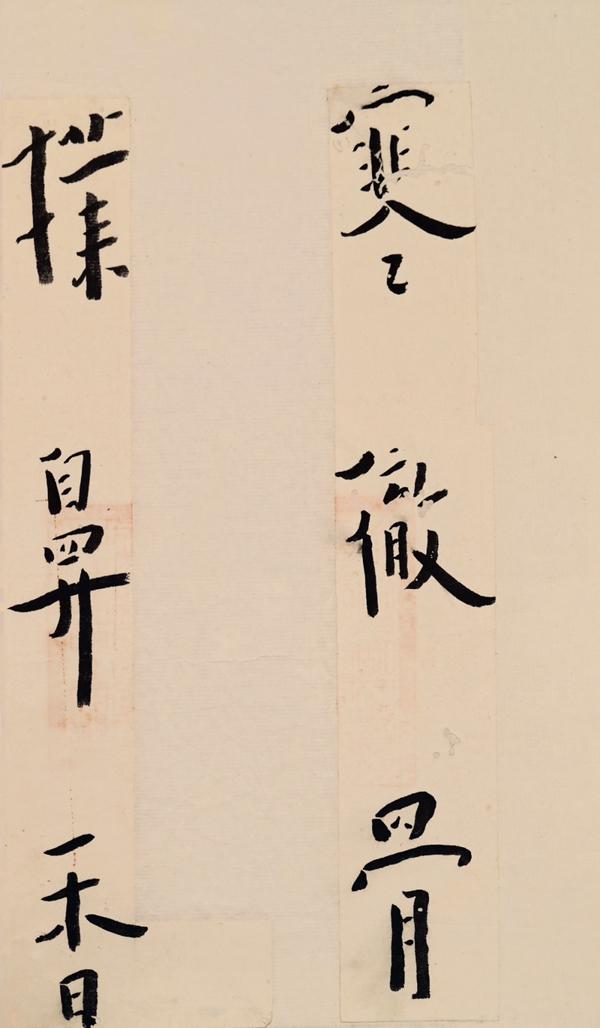 寒徹骨
撲鼻香